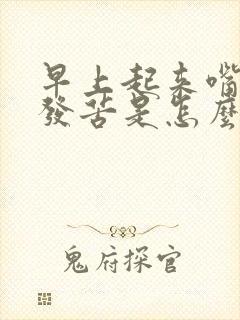 早上起来嘴
發苦是怎麼
鬼府探官